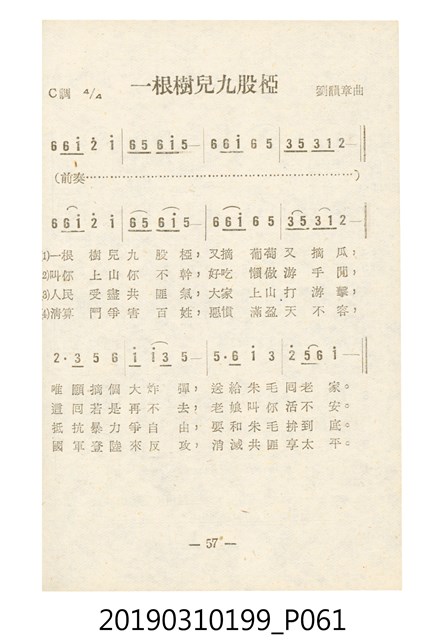 一根樹兒九股椏
C調 4/4 劉韻章曲
6 6 i 2 i | 6 5 6 i 5— | 6 6 i 6 5 | 3 5 3 1 2 —
(前奏……………………………………………………)
6 6 i 2 i | 6 5 6 i 5— | 6 6 i 6 5 | 3 5 3 1 2 —
(1)一根 樹兒九 股椏,又摘 葡萄又 摘瓜;
(2)叫你 上山你 不幹,好吃 懶做游 手閒,
(3)人民 受盡共 匪氣,大家 上山打 游擊,
(4)清算 鬥爭害 百姓,惡慣 滿盈天 不容,
2 · 3 5 6 | i i 3 5 — | 5 · 6 i 3 | 2 5 6 i —
唯願摘個大炸彈,送給朱毛回老家。
這回若是再不去,老娘叫你活不安。
抵抗暴力爭自由,要和朱毛拚到底。
國軍登陸來反攻,消滅共匪享太平。
— 57 —
20190310199_P061